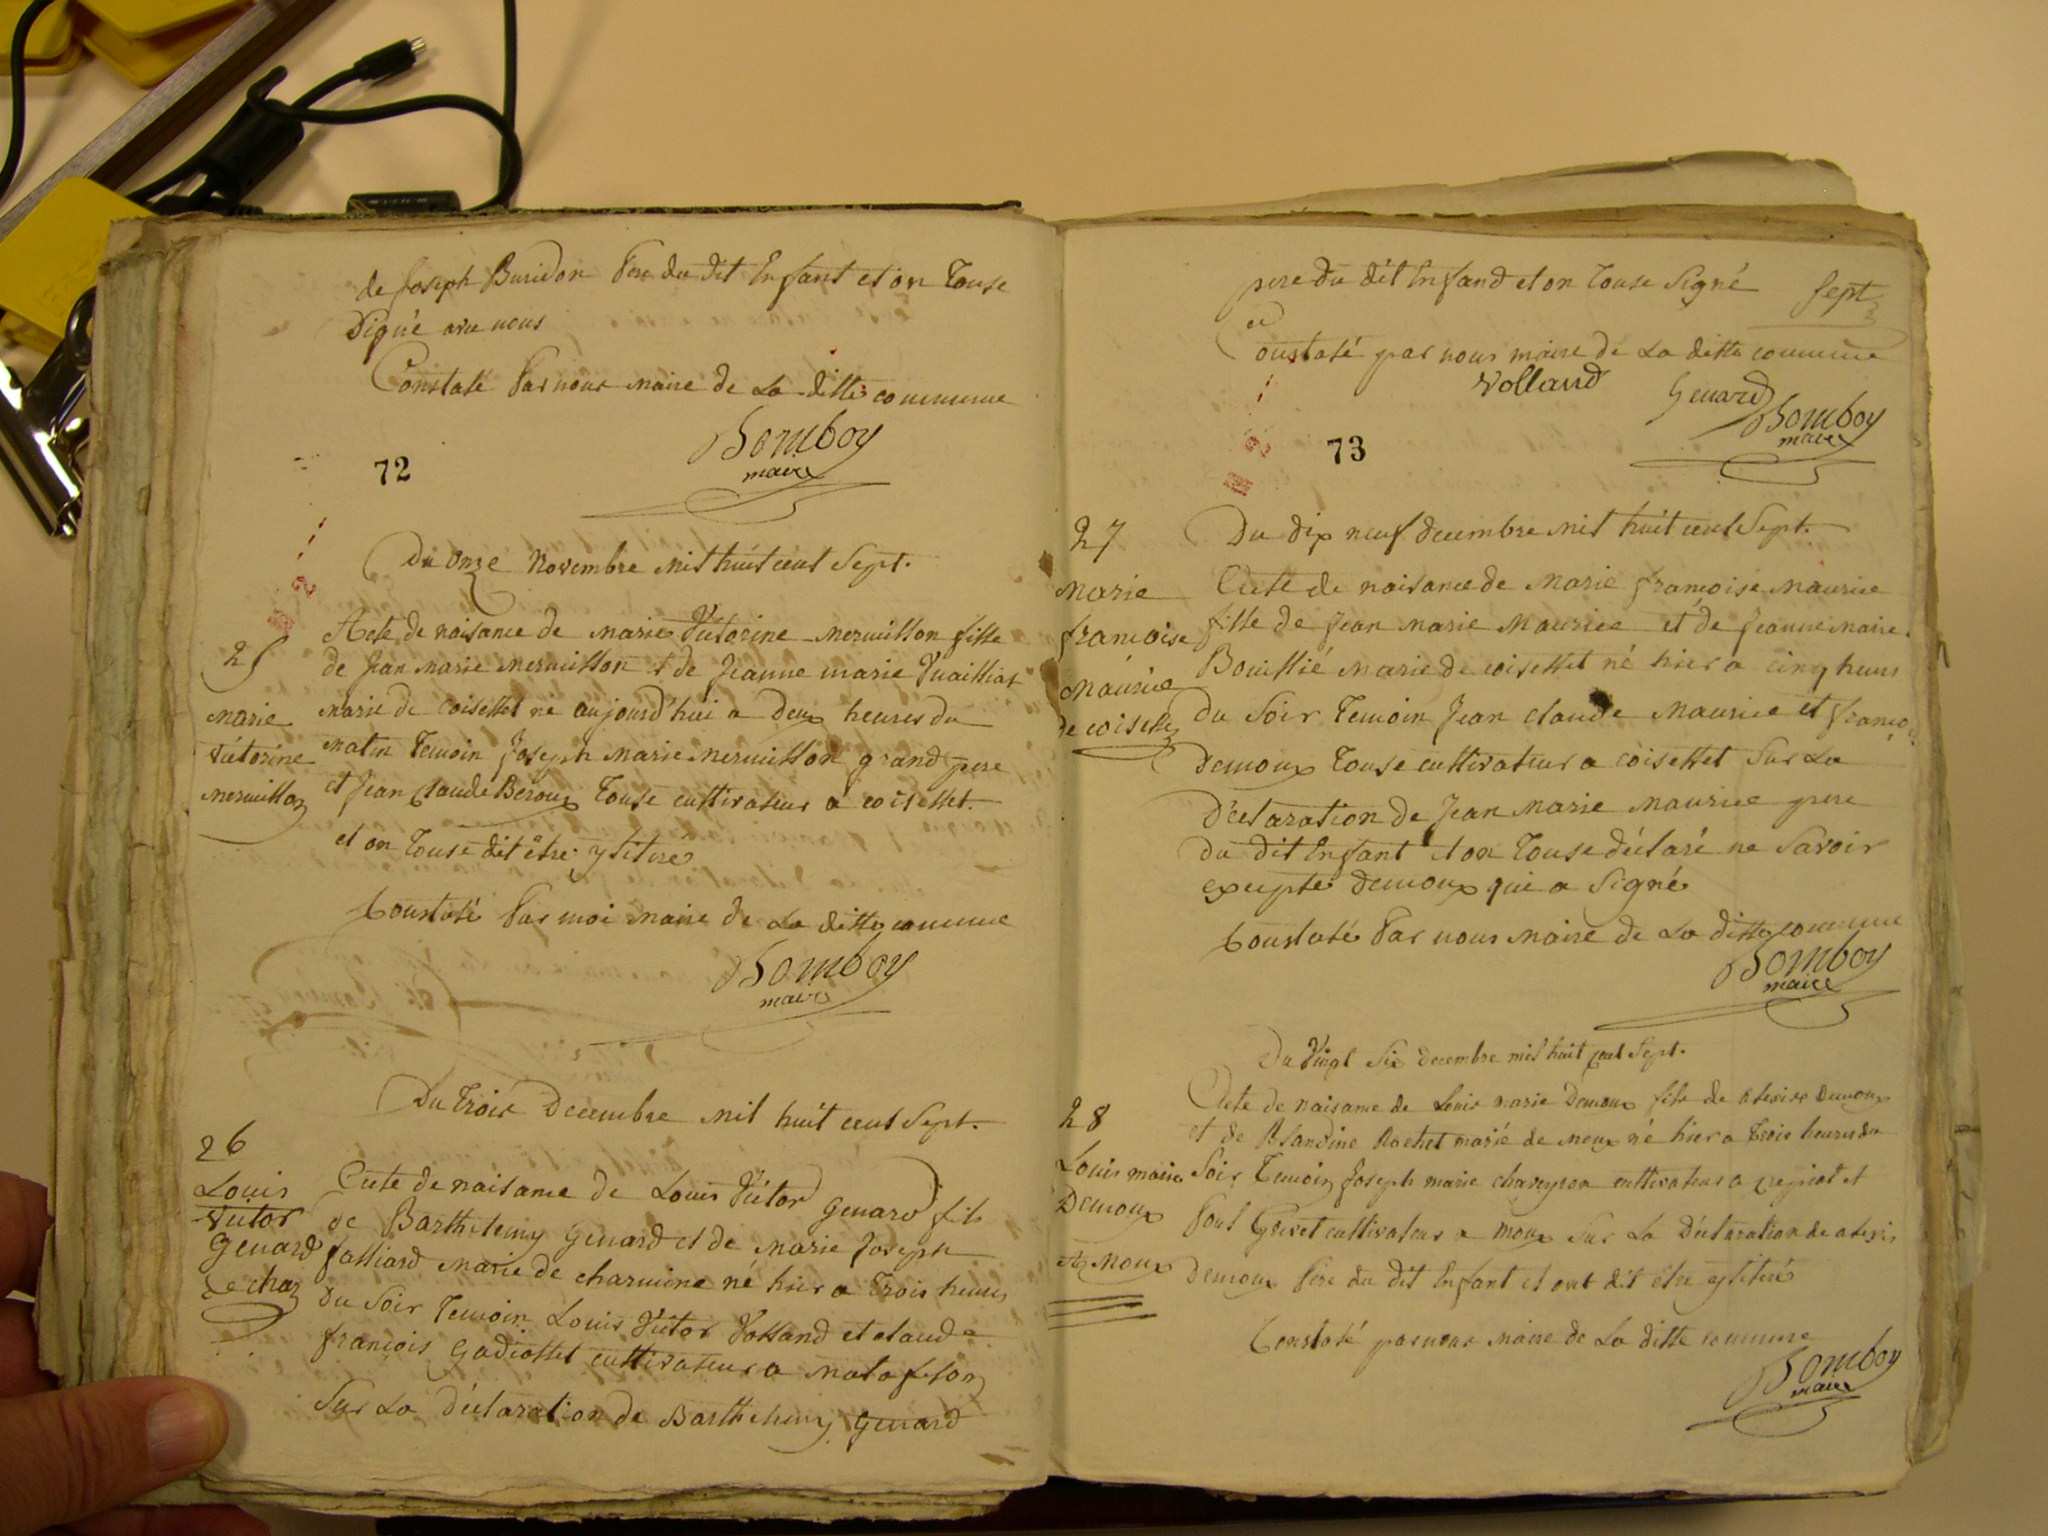 de Joseph Buridon Pere du dit Enfant et on Touse
Signé avec nous
Constaté Par nous maire de La ditte commune
Bomboy
maire
72
Du onze Novembre mil huit cent Sept.
25
Marie
Victorine
Mermillon
Acte de naisance de Marie Victorine Mermillon fille
de Jean Marie Mermillon et de Jeanne marie Vuailliat
Marie de Coisellet né aujourd'hui a Deux heures du
matin Temoin Joseph Marie Mermillon grand pere
et Jean Claude Beroux Touse cultivateur a coisellet.
et on Touse dit être ylitiré
Constaté Par moi Maire de La ditte commune
Bomboy
maire
Du trois Decembre mil huit cent Sept.
26
Louis
Victor
Genard
De char
Acte de naisance de Louis Victor Genard fils
de Barthelemy Genard et de Marie Joseph
falliard Marie de charmine né hier a Trois heures
du Soir Temoin Louis Victor Volland et claude
françois Gadiollet cultivateur a Matafelon
Sur La Déclaration de Barthelemy Genard
pere du dit Enfand et on Touse Signé
Sept
Constaté par nous maire de La ditte commune
Volland
Genard
Bomboy
maire
73
27
Marie
françoise
Maurice
de coisellet
Du dix neuf decembre mil huit cent Sept.
Acte de naisance de Marie françoise Maurice
fille de Jean Marie Maurice et de Jeanne Marie
Bouillié Marie de coisellet né hier a cinq heures
du Soir Temoin Jean claude Maurice et françois
Demoux Touse cultivateur a coisellet Sur La
Déclaration de Jean Marie Maurice pere
du dit Enfant et on Touse déclaré ne Savoir
excepté Demoux qui a Signé
Constaté Par nous Maire de La ditte commune
Bomboy
maire
Du Vingt Six decembre mil huit cent Sept.
28
Louis marie
Demoux
de Moux
Acte de naisance de Louis marie Demoux fils de alexis Demoux
et de Blandine Rochet marié de Moux né hier a trois heures du
Soir Temoin Joseph marie chaveyron cultivateur a et
Paul Goiret cultivateur a moux Sur La Déclaration de alexis
Demoux Pere du dit Enfant et ont dit etre ylitiré
Constaté par nous Maire de La ditte commune
Bomboy
maire